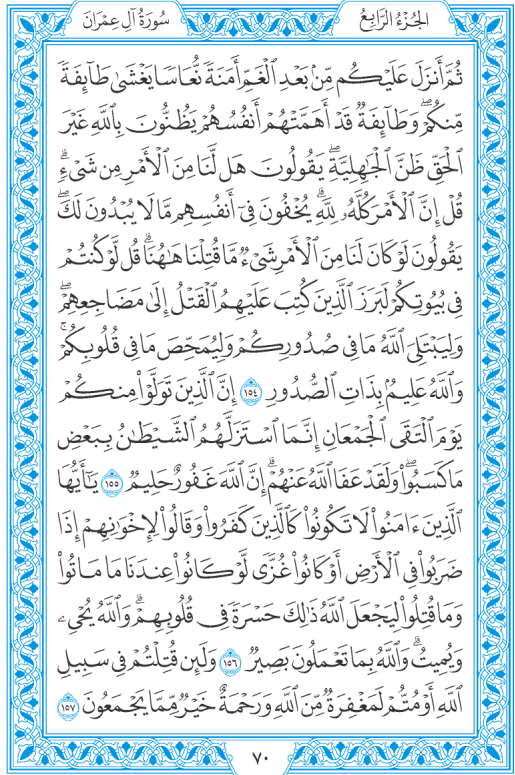 الجُزْءُ الرَّابِعُ سُورَةُ آلِ عِمْرَانَ
ثُمَّ أَنزَلَ عَلَيْكُم مِّنۢ بَعْدِ ٱلْغَمِّ أَمَنَةً نُّعَاسًا يَغْشَىٰ طَآئِفَةً
مِّنكُمْ ۖ وَطَآئِفَةٌ قَدْ أَهَمَّتْهُمْ أَنفُسُهُمْ يَظُنُّونَ بِٱللَّهِ غَيْرَ
ٱلْحَقِّ ظَنَّ ٱلْجَٰهِلِيَّةِ ۖ يَقُولُونَ هَل لَّنَا مِنَ ٱلْأَمْرِ مِن شَىْءٍ ۗ
قُلْ إِنَّ ٱلْأَمْرَ كُلَّهُۥ لِلَّهِ ۗ يُخْفُونَ فِىٓ أَنفُسِهِم مَّا لَا يُبْدُونَ لَكَ ۖ
يَقُولُونَ لَوْ كَانَ لَنَا مِنَ ٱلْأَمْرِ شَىْءٌ مَّا قُتِلْنَا هَٰهُنَا ۗ قُل لَّوْ كُنتُمْ
فِى بُيُوتِكُمْ لَبَرَزَ ٱلَّذِينَ كُتِبَ عَلَيْهِمُ ٱلْقَتْلُ إِلَىٰ مَضَاجِعِهِمْ ۖ
وَلِيَبْتَلِىَ ٱللَّهُ مَا فِى صُدُورِكُمْ وَلِيُمَحِّصَ مَا فِى قُلُوبِكُمْ ۗ
وَٱللَّهُ عَلِيمٌۢ بِذَاتِ ٱلصُّدُورِ ١٥٤ إِنَّ ٱلَّذِينَ تَوَلَّوْا۟ مِنكُمْ
يَوْمَ ٱلْتَقَى ٱلْجَمْعَانِ إِنَّمَا ٱسْتَزَلَّهُمُ ٱلشَّيْطَٰنُ بِبَعْضِ
مَا كَسَبُوا۟ ۖ وَلَقَدْ عَفَا ٱللَّهُ عَنْهُمْ ۗ إِنَّ ٱللَّهَ غَفُورٌ حَلِيمٌ ١٥٥ يَٰٓأَيُّهَا
ٱلَّذِينَ ءَامَنُوا۟ لَا تَكُونُوا۟ كَٱلَّذِينَ كَفَرُوا۟ وَقَالُوا۟ لِإِخْوَٰنِهِمْ إِذَا
ضَرَبُوا۟ فِى ٱلْأَرْضِ أَوْ كَانُوا۟ غُزًّى لَّوْ كَانُوا۟ عِندَنَا مَا مَاتُوا۟
وَمَا قُتِلُوا۟ لِيَجْعَلَ ٱللَّهُ ذَٰلِكَ حَسْرَةً فِى قُلُوبِهِمْ ۗ وَٱللَّهُ يُحْىِۦ
وَيُمِيتُ ۗ وَٱللَّهُ بِمَا تَعْمَلُونَ بَصِيرٌ ١٥٦ وَلَئِن قُتِلْتُمْ فِى سَبِيلِ
ٱللَّهِ أَوْ مُتُّمْ لَمَغْفِرَةٌ مِّنَ ٱللَّهِ وَرَحْمَةٌ خَيْرٌ مِّمَّا يَجْمَعُونَ ١٥٧
٧٠